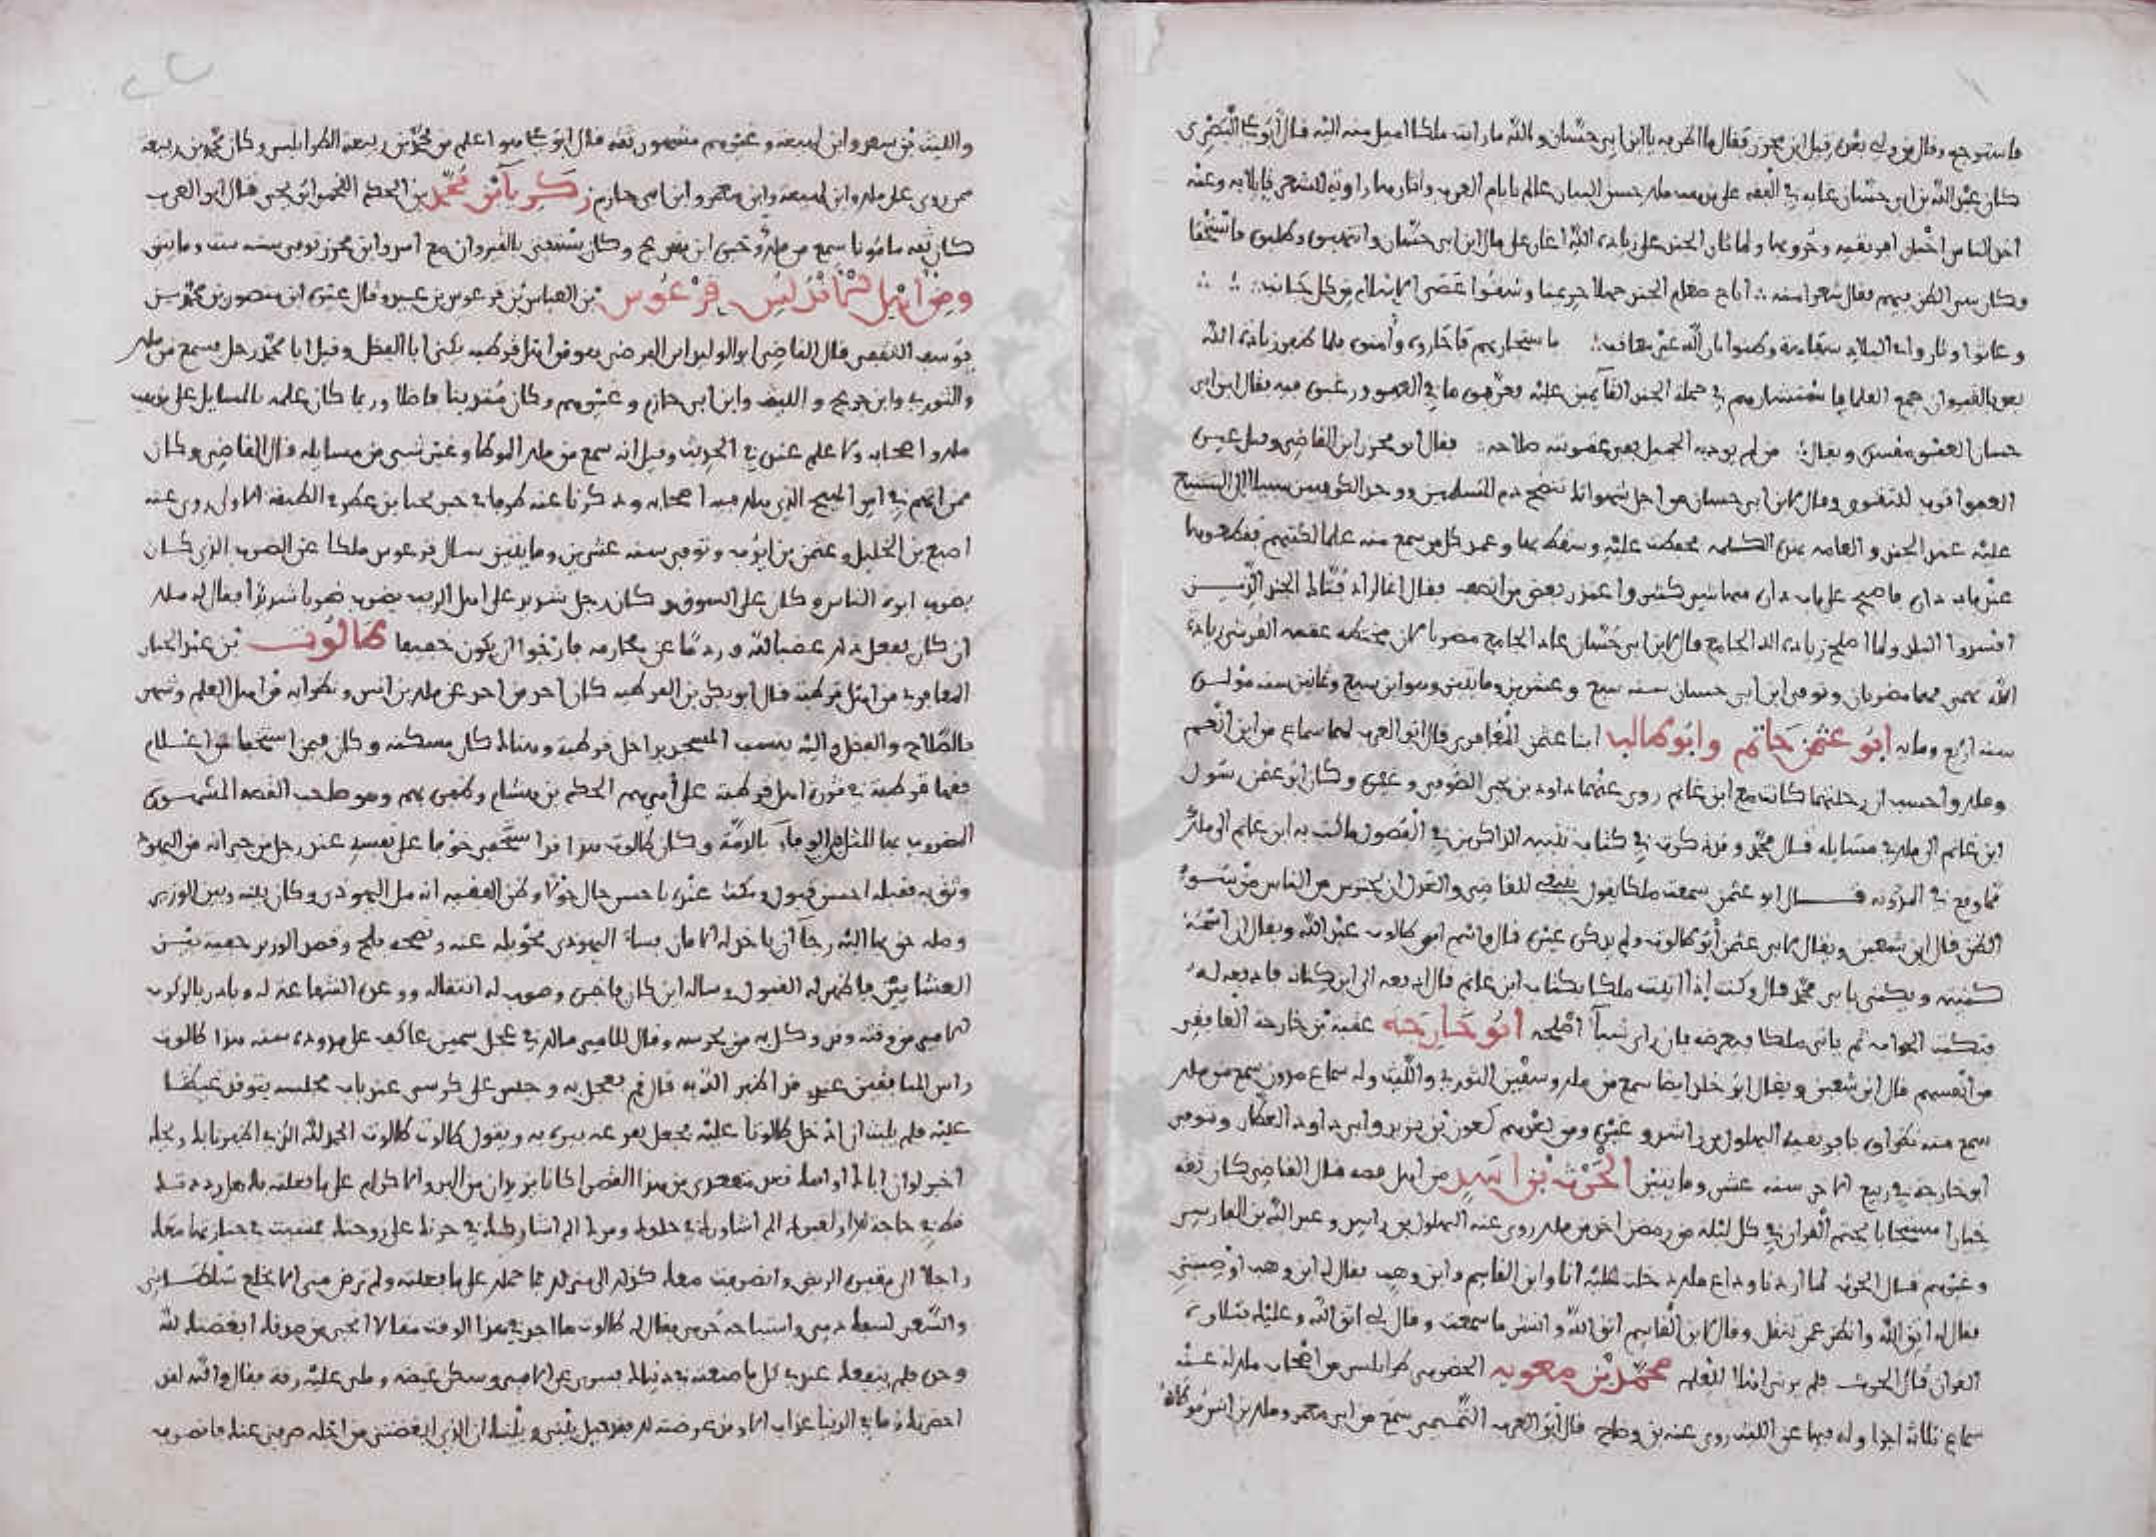 فاستوجع وقال من ولي بعدي قيل ابن محرز فقال ما اظن به يا ابن ابي حسان والله ما رايت ملكا اميل منه اليه قال ابو علي البصري
كان عبد الله بن ابي حسان غاية في الفقه على مذهب ملك حسن البيان عالما بايام العرب وانسابها راوية للشعر قايلا به وعنه
اخذ الناس اخبار افريقية وحروبها ولما ثار الجند على زيادة الله اغار على مال ابن ابي حسان وانتهبوه وطلبوه فاستخفا
وكان سيء الظن بهم فقال شعرا منه اباح طغام الجند جهلا حريمنا وشقوا عصى الاسلام من كل جانب
وعاثوا وثاروا في البلاد سفاهة وظنوا بان الله غير معاقب ما استجار بهم فاجاروه وامنوه فلما ظهر زيادة الله
بعد بالقيروان جمع العلما فاستشارهم في جملة الجند القايمين عليه يعرفهم ما في العفو ورغبوه فيه فقال ابن ابي
حسان العفو مفسدة ويقال من لم يودبه الجميل ففي عقوبته صلاحه فقال ابو محرز ابن القاضي وقيل غيره
العفو اقرب للتقوى وقال لابن ابي حسان
عليه عند الجند والعامة هذه الكلمة فحفظت عليه وسقط بها وعمد كل من سمع منه علما لكتبهم فقطعوها
عند باب داره فاصبح على باب داره منها شيء كثير واعتذر بعض من انصفه فقال انما اراد قتال الجند الذين
افسدوا البلد ولما اصلح زيادة الله الجامع قال لابن ابي حسان
الله وتوفي ابن ابي حسان سنة سبع وعشرين ومايتين وهو ابن سبع وثمانين سنة مولده
سنة اربع وماية ابو عثمن حاتم وابو طالب ابنا عثمن المعافري قال ابو العرب لهما سماع من ابن انعم
وملك واحسب ان رحلتهما كانت مع ابن غانم روى عنهما داود بن يحيى الصوفي وغيره وكان ابو عثمن رسول
ابن غانم الى ملك في مسايله قال محمد وقد ذكرت في كتاب تنبيه الذاكرين في الفصول ما كتب به ابن غانم الى ملك
مما وقع في المدونة قال ابو عثمن سمعت ملكا يقول ينبغي للقاضي والعدل ان يحترس من الناس من سوء
الظن قال ابن شعبن ويقال لابي عثمن ابو طالوت ولم يذكره غيره قال واسم ابو طالوت عبد الله ويقال ان اسمه
كنيته ويكنى بابي محمد قال وكنت اذا اتيت ملكا بكتاب ابن غانم قال ادفعه الى ابن كنانة فادفعه له
فيكتب الجواب ثم ياتي ملكا فيعرضه فان راى شيئا اصلحه ابو خارجة عنبسة بن خارجة الغافقي
من انفسهم قال ابن شعبن ويقال ابو خلد ايضا سمع من ملك وسفين الثوري والليث وله سماع مدون سمع من ملك
سمع منه نظراوه بافريقية البهلول بن راشد وغيره ومن بعدهم كعون بن يوسف وابي داود العطار وتوفي
ابو خارجة في ربيع الاخر سنة عشر ومايتين الحرث بن اسد من اهل قفصة قال القاضي كان ثقة
خيارا مستجابا يختم القران في كل ليلة من رمضن اخذ من ملك روى عنه البهلول بن راشد وعبد الله بن الفارسي
وغيرهم قال الحرث لما اردنا وداع ملك دخلت عليه انا وابن القاسم وابن وهب فقال له ابن وهب اوصيني
فقال له اتق الله وانظر عمن تنقل وقال لابن القاسم اتق الله وانشر ما سمعت وقال لي اتق الله وعليك بتلاوة
القران قال الحرث فلم يرني اهلا للعلم محمد بن معوية الحضرمي طرابلسي من اصحاب ملك له عنه
سماع ثلاثة اجزا وله فيها عن الليث روى عنه بن وضاح قال ابو العرب التميمي سمع من ابي معمر وملك بن انس موطاه
والليث بن سعد وابن لهيعة وغيرهم مشهور ثقة قال ابو علي هو اعلم من محمد بن ربيعة الطرابلسي وكان محمد بن ربيعة
ممن روى على ملك وابن لهيعة وابن معمر وابن ابي حازم زكرياء بن محمد بن الحكم اللخمي ابو يحيى قال ابو العرب
كان ثقة مامونا سمع من ملك وكان يستفتى بالقيروان مع اسد وابن محرز توفي سنة ست ومايتين
ومن اهل الاندلس قرعوس بن العباس بن قرعوس بن عبيد وقال غيره ابن منصور بن محمد بن
يوسف الثقفي قال القاضي ابو الوليد ابن الفرضي هو من اهل قرطبة يكنى ابا الفضل وقيل ابا محمد رحل فسمع من ملك
والثوري وابن جريج والليث وابن ابي حازم وغيرهم وكان متدينا فاضلا ورعا كان علمه بالمسايل على مذهب
ملك واصحابه ولا علم عنده في الحديث وقيل انه سمع من ملك الموطا وغير شيء من مسايله قال القاضي وكان
ممن اتهم في امر الهيج الذي هلك فيه اصحابه وذكرنا عنه طرفا في خبر يحيا بن يحيى في الطبقة الاولى روى عنه
اصبغ بن الخليل وعثمن بن ايوب وتوفي سنة عشرين ومايتين سال قرعوس ملكا عن الضرب الذي كان
يضرب ابوه الناس وكان على السوق وكان رجل شديد على اهل الريب يضرب ضربا شديدا فقال له ملك
ان كان يفعل ذلك غضبا لله وردعا عن محارمه فارجوا ان يكون خفيفا طالوت بن عبد الجبار
المعافري من اهل قرطبة قال ابو بكر بن القوطية كان اخر من اخذ عن ملك بن انس ونظرايه من اهل العلم وشهر
بالصلاح والفضل واليه ينسب المسجد بداخل قرطبة وهناك كان مسكنه وكان فيمن استخفا من اعلام
فقها قرطبة في ثورة اهل قرطبة على اميرهم الحكم بن هشام وظفره بهم وهو صاحب القصة المشهورة
المضروب بها المثل في الوفاء بالذمة وكان طالوت هذا قد استخفى خوفا على نفسه عند رجل من جيرانه من اليهود
وثق به فقبله احسن قبول ومكث عنده باحسن حال حولا وظن الفقيه انه مل اليهودي وكان بينه وبين الوزير
وصلة حن بها اليه رجاء ان ياخذ له الامان فساء اليهودي تحويله عنه ونصحه فلج وقصد الوزير خفية بين
العشايين فاظهر له القبول وساله اين كان فاخبره وصوب له انتقاله ووعده الشفاعة له وبادر بالركوب
للامير من وقته وقد وكل به من يحرسه وقال للامير مالك في عجل سمين عاكف على مذوده سنة هذا طالوت
راس المنافقين عندي قد اظفر الله به قال قم فعجل به وجلس على كرسي عند باب مجلسه يتوقد غيظا
عليه فلم يلبث ان ادخل طالوت عليه فجعل يقرعه بيده به ويقول طالوت طالوت الحمد لله الذي اظفرنا بك ويحك
اخبرني لو ان اباك او ابنك قعد مقعدي من هذا القصر اكانا يزيدان من البر والاكرام على ما فعلته بك هل رددتك
قط في حاجة لك او لغيرك الم اشاورك في حلوك ومرك الم اشاركك في حزنك على زوجتك فمشيت في جنازتها معك
راجلا الى مقبرة الربض وانصرفت معك كذلك الى منزلك فما حملك على ما فعلته ولم ترض مني الا بخلع سلطاني
والسعي لسفك دمي واستباحة حرمي فقال له طالوت ما اجد في هذا الوقت مقالا انجى من صدقك ابغضتك لله
وحده فلم ينفعك عندي كل ما صنعته في دنياك فسري عن الامير وسكن غيظه وطرى عليه رقة فقال والله لقد
احضرتك وما في الدنيا عذاب الا وقد عرضته لك فقد حيل بيني وبينك ان الذي ابغضتني من اجله صرفني عنك فانصرف